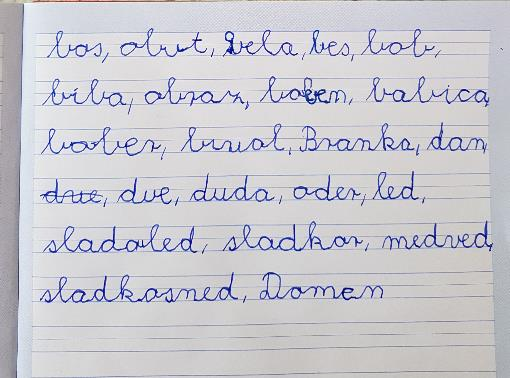 bos, obut, bela, bes, bob,
biba, obraz, boben, babica,
bober, Branka, dan,
dve, duda, oder, led,
sladoled, sladkor, medved,
sladkosned, Domen